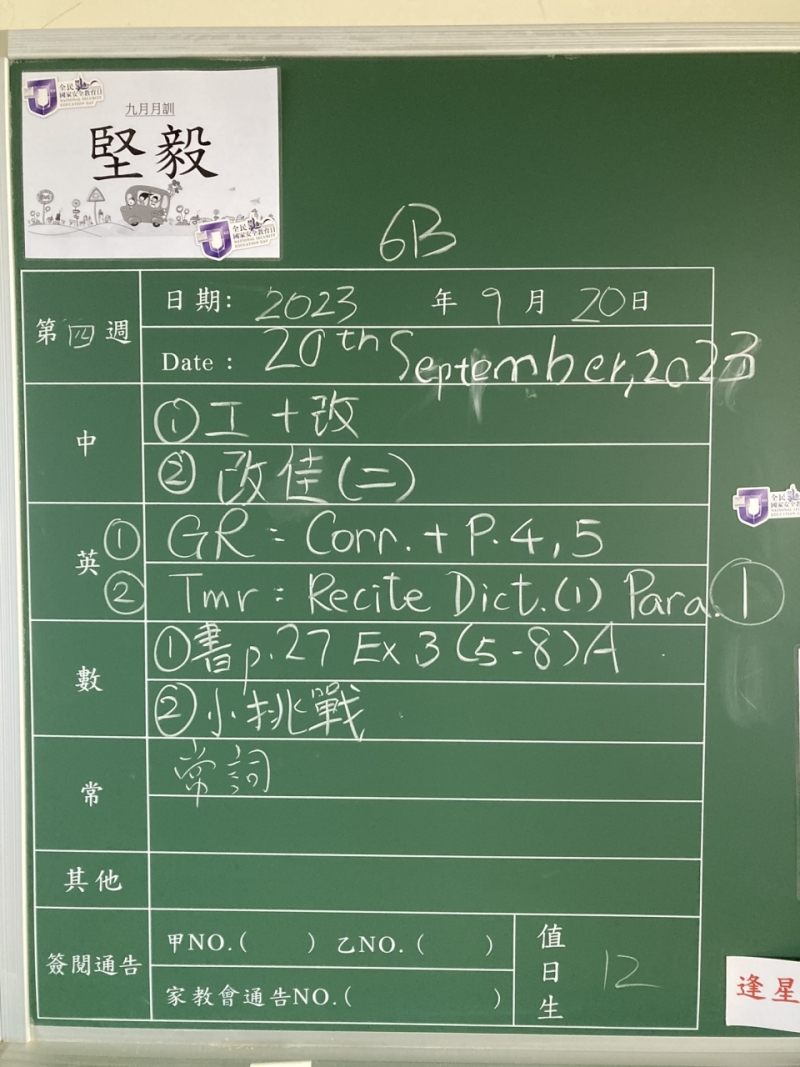 全民
國家安全教育日
NATIONAL SECURITY
EDUCATION DAY
九月月訓
堅毅
全民
國家安全教育日
NATIONAL SECURITY
EDUCATION DAY
6B
第四週
日期: 2023 年 9 月 20 日
Date : 20th September, 2023
中
① 工 + 改
② 改佳(二)
英
① GR : Corr. + P. 4, 5
② Tmr : Recite Dict. (1) Para. 1
數
① 書 p.27 Ex 3 (5-8) A
② 小挑戰
常
常詞
其他
簽閱通告
甲NO.( ) 乙NO. ( )
家教會通告NO. ( )
值日生
12
全民
國家安全
逢星